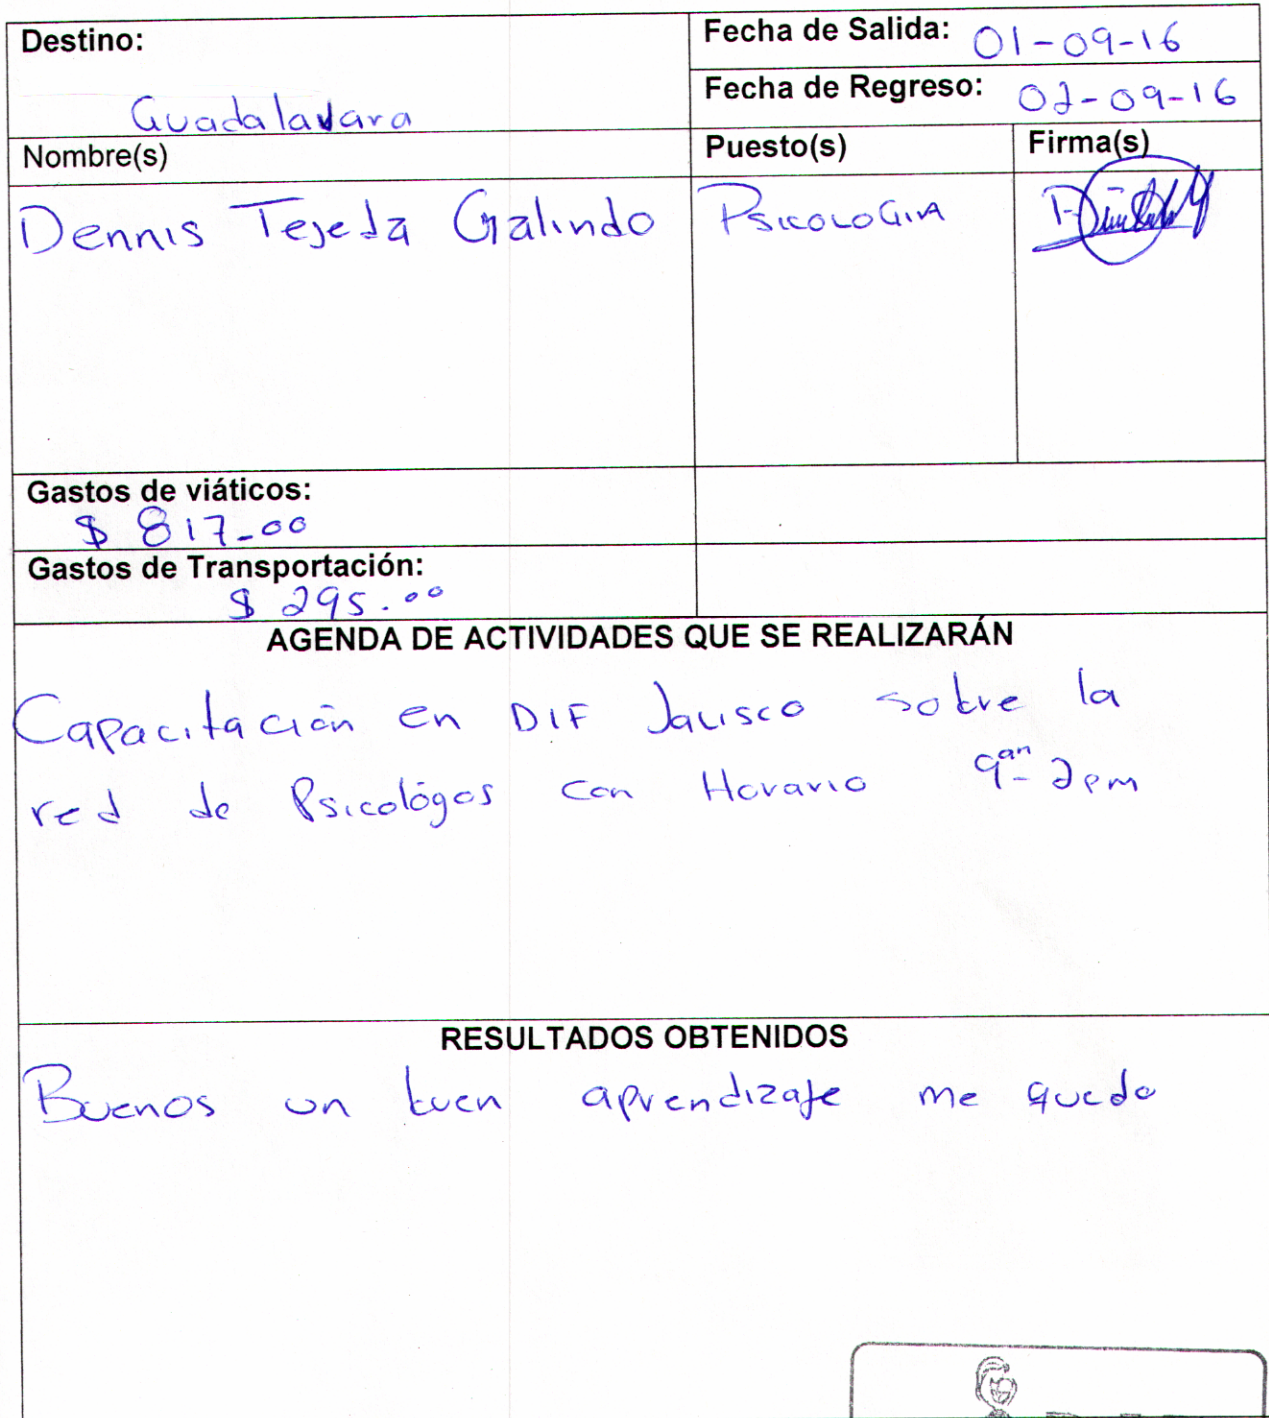 Destino:
Guadalavara
Fecha de Salida: 01-09-16
Fecha de Regreso: 02-09-16
Nombre(s)
Puesto(s)
Firma(s)
Dennis Tejeda Galindo
Psicologia
Gastos de viáticos:
$ 817-00
Gastos de Transportación:
$ 295.00
AGENDA DE ACTIVIDADES QUE SE REALIZARÁN
Capacitación en DIF Jalisco sobre la
red de Psicológos con Horario 9am - 2pm
RESULTADOS OBTENIDOS
Buenos un buen aprendizaje me quedo